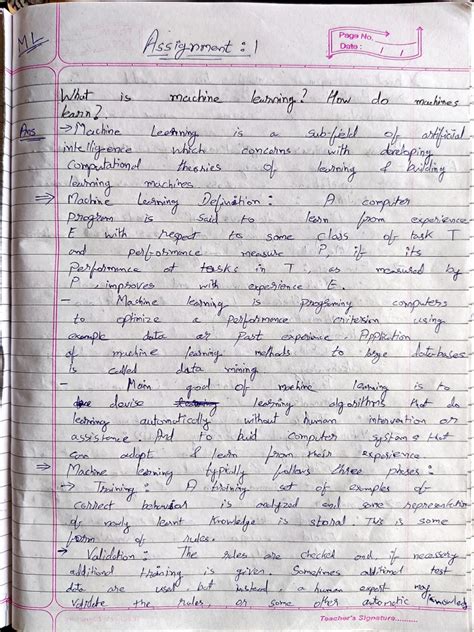 ML
Assignment : 1
Page No.
Date : / /
What is machine learning? How do machines
learn?
Ans → Machine Learning is a sub-field of artificial
intelligence which concerns with developing
Computational theories of learning & building
learning machines
⇒ Machine Learning Definition : A computer
Program is said to learn from experience
E with respect to some class of task T
and performance measure P, if its
Performance at tasks in T, as measured by
P, improves with experience E.
- Machine learning is programing computers
to optimize a performance criterion using
example data or Past experience. Application
of machine learning methods to large databases
is called data mining
- Main goal of machine learning is to
devise learning algorithms that do
learning automatically without human intervention or
assistance. And to buid computer systems that
can adapt & learn from their experience.
⇒ Machine learning typically follows three phases :
→ Training : A training set of examples of
correct behaviour is analyzed and some representation
of newly learnt Knowledge is stored. This is some
form of rules.
→ Validation : The rules are checked and, if necessary
additional training is given. Sometimes additional test
data are used but instead, a human expert may
validate the rules, or some other automatic knowledge
Teacher's Signature..........